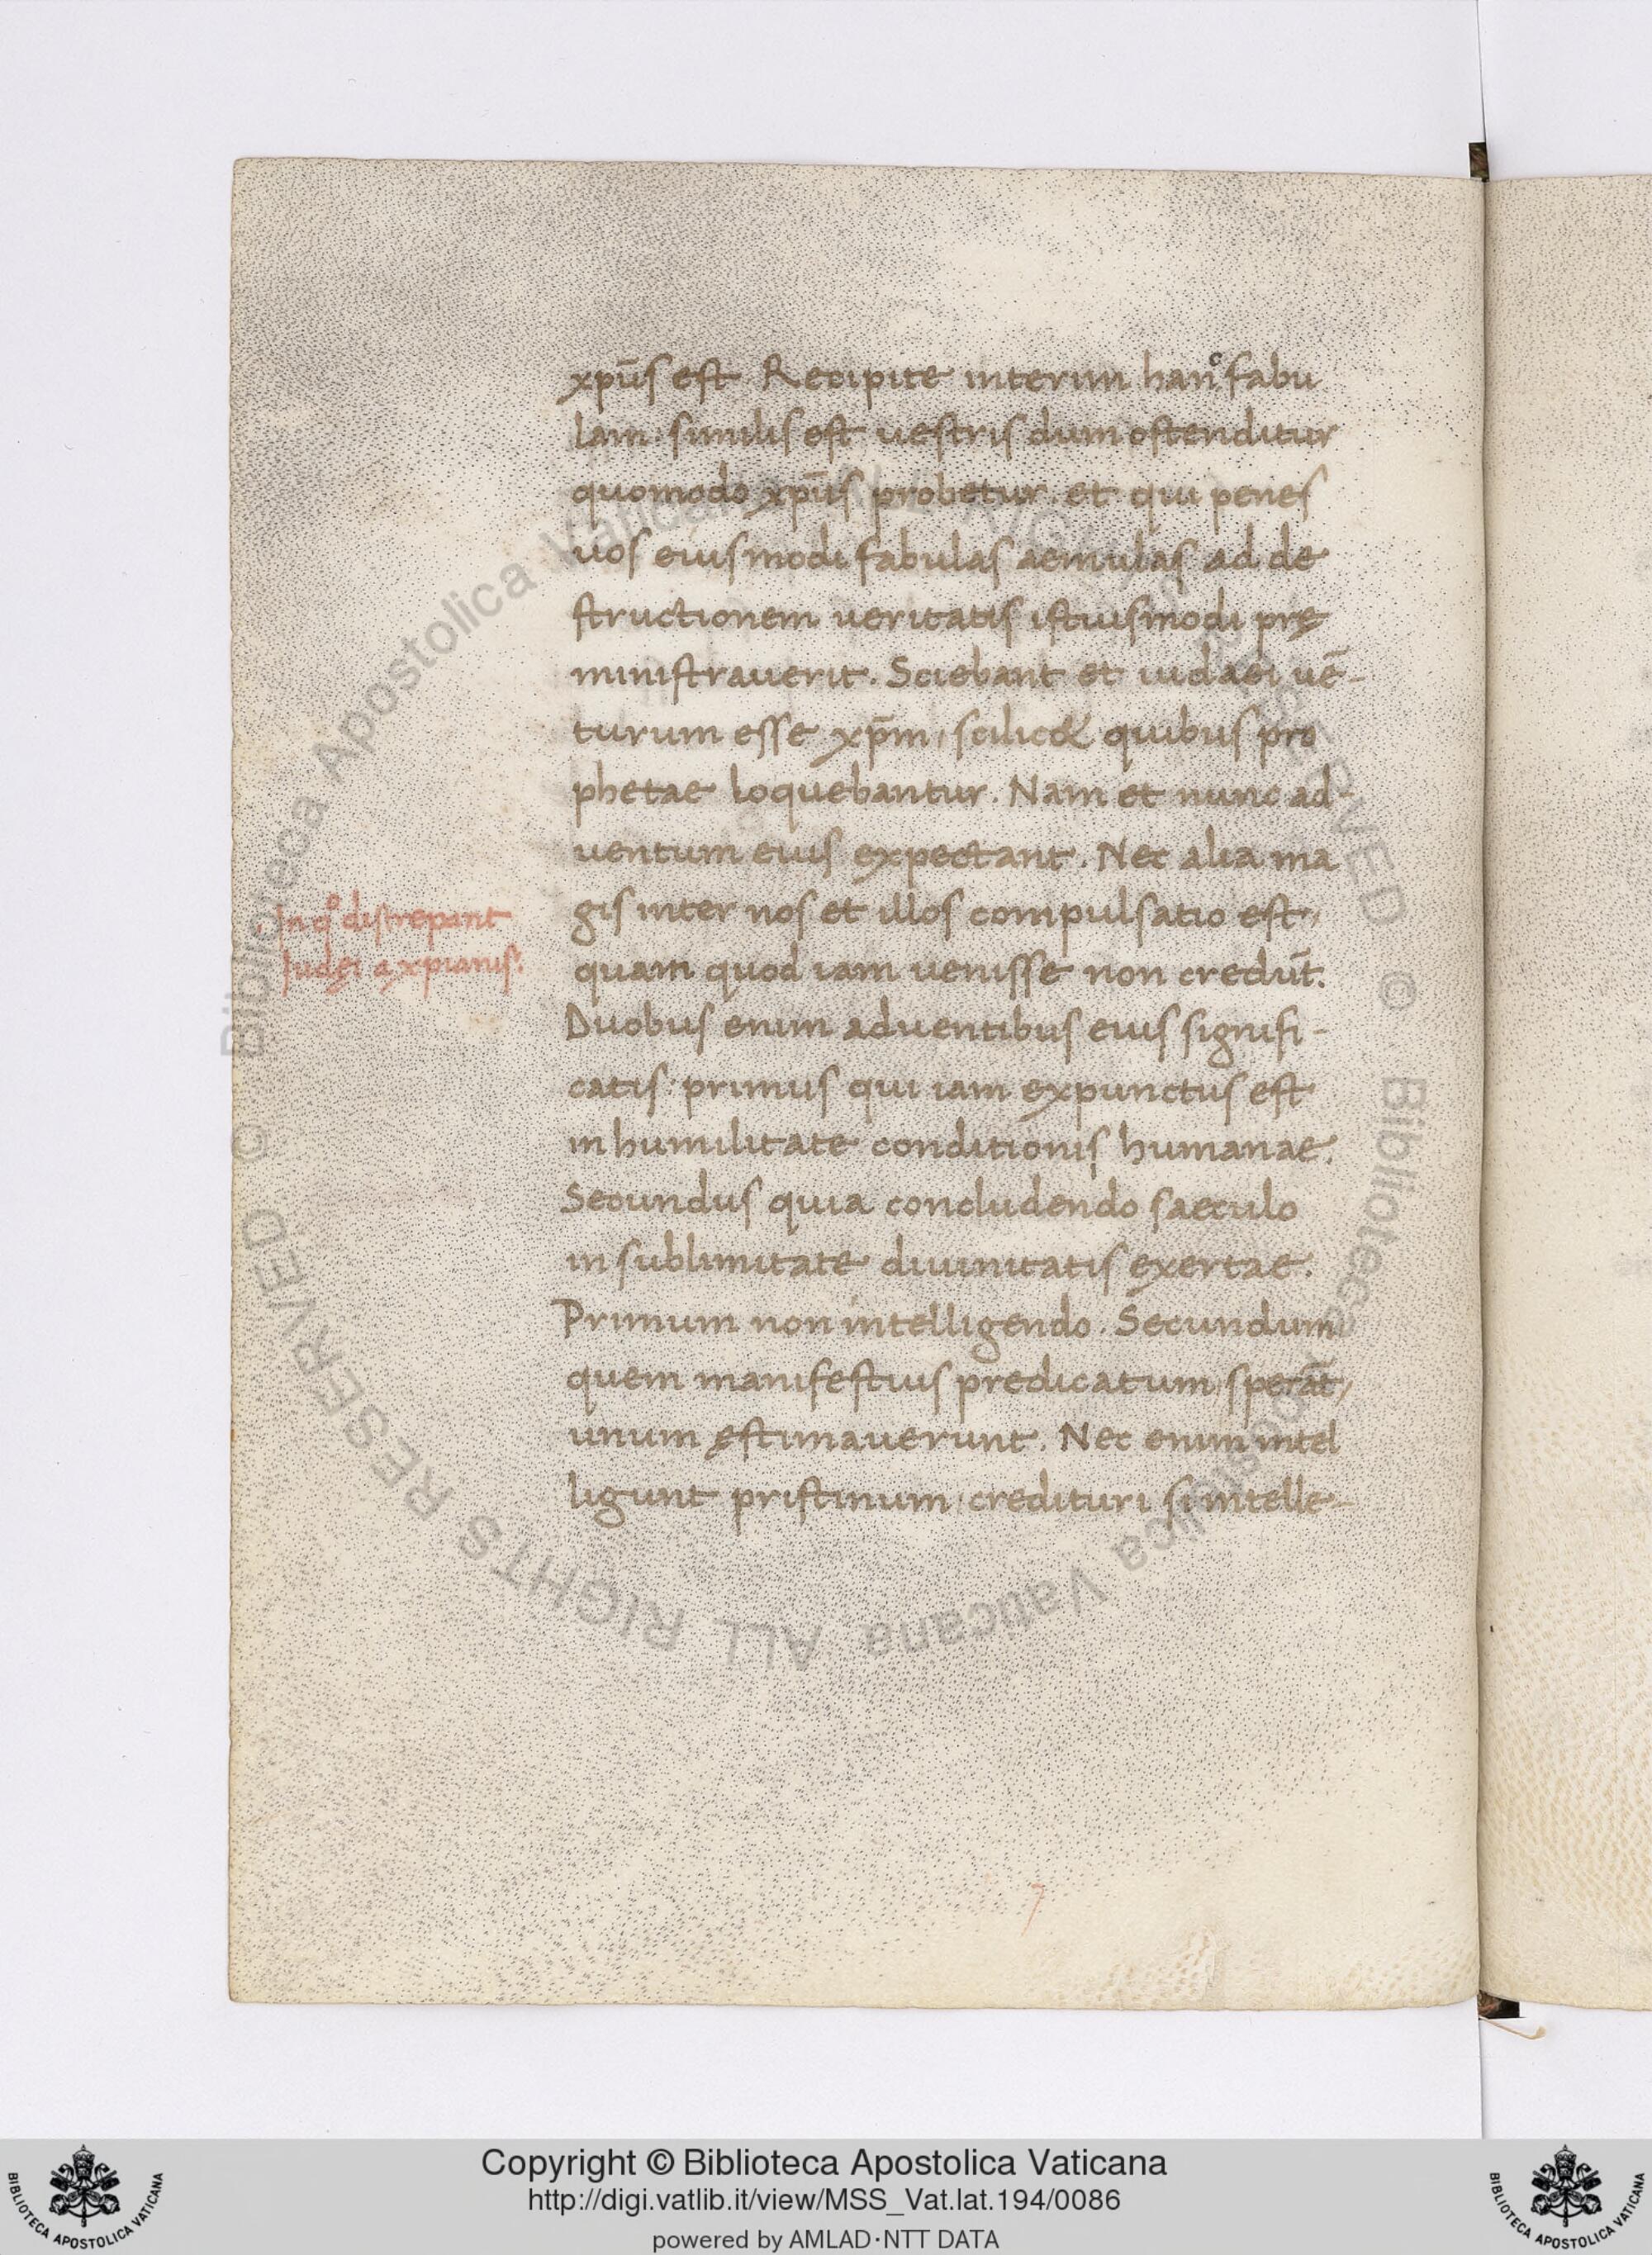 xpūs est Recipite interim hanc fabu
lam. similis est vestris dum ostenditur
quomodo xpūs probetur. et qui penes
vos eiusmodi fabulas aemulas ad de
structionem veritatis istiusmodi prę
ministraverit. Sciebant et iudaei uē-
turum esse xp̄m, scilic& quibus pro
phetae loquebantur. Nam et nunc ad-
ventum eius expectant. Nec alia ma
gis inter nos et illos compulsatio est,
In qͦ distrepant
Iudęi a xpianis.
quam quod iam venisse non credūt.
Duobus enim adventibus eius signifi-
catis: primus qui iam expunctus est
in humilitate conditionis humanae.
Secundus quia concludendo saeculo
in sublimitate divinitatis exertae.
Primum non intelligendo. Secundum
quem manifestius predicatum sperāt,
unum ęstimaverunt. Nec enim intel
ligunt pristinum, credituri si intelle-
7
© Biblioteca Apostolica Vaticana ALL RIGHTS RESERVED
Copyright © Biblioteca Apostolica Vaticana
http://digi.vatlib.it/view/MSS_Vat.lat.194/0086
powered by AMLAD·NTT DATA
BIBLIOTECA APOSTOLICA VATICANA
BIBLIOTECA APOSTOLICA VATICANA